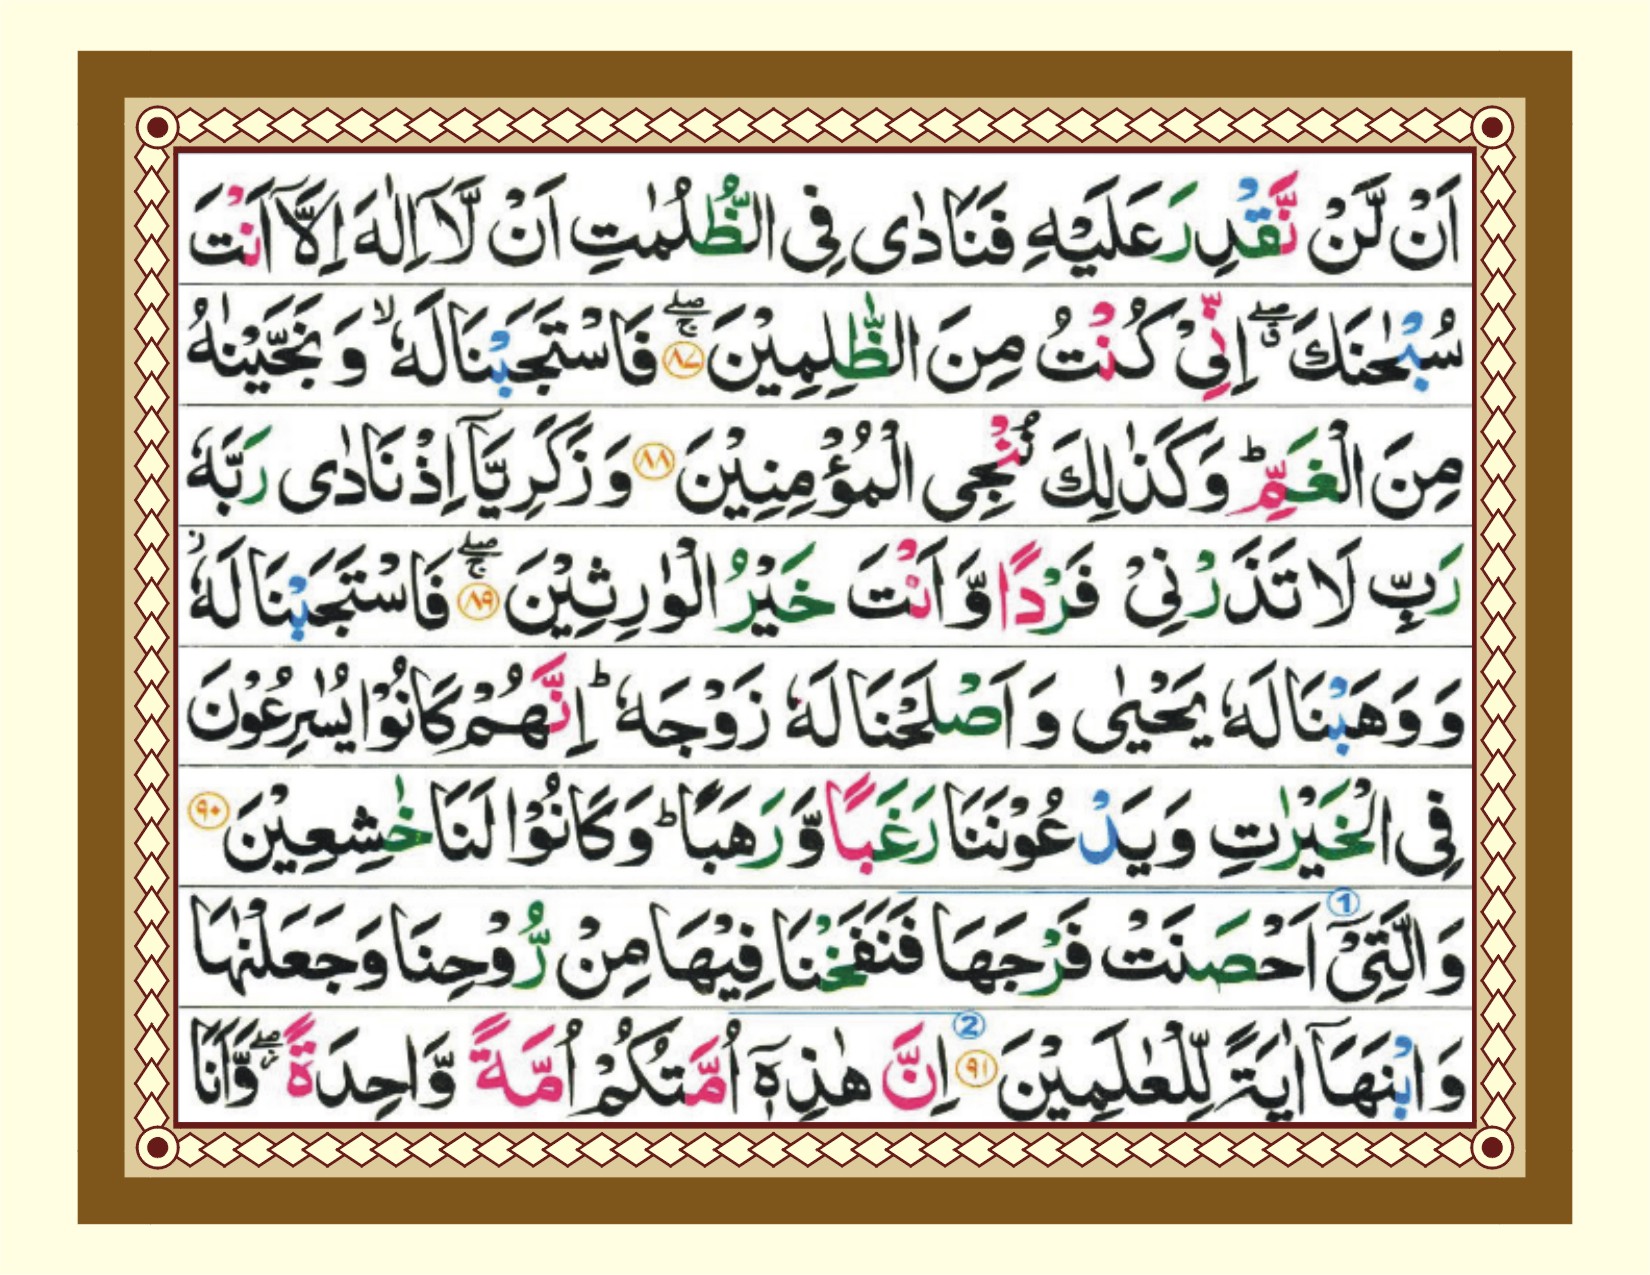 اَنْ لَّنْ نَّقْدِرَ عَلَيْهِ فَنَادٰى فِى الظُّلُمٰتِ اَنْ لَّاۤ اِلٰهَ اِلَّاۤ اَنْتَ
سُبْحٰنَكَ ۖق اِنِّىْ كُنْتُ مِنَ الظّٰلِمِيْنَ ۖۚ ٨٧ فَاسْتَجَبْنَا لَهٗ ۙ وَ نَجَّيْنٰهُ
مِنَ الْغَمِّ ؕ وَكَذٰلِكَ نُنْجِى الْمُؤْمِنِيْنَ ٨٨ وَ زَكَرِيَّاۤ اِذْ نَادٰى رَبَّهٗ
رَبِّ لَا تَذَرْنِىْ فَرْدًا وَّاَنْتَ خَيْرُ الْوٰرِثِيْنَ ۖۚ ٨٩ فَاسْتَجَبْنَا لَهٗ ۫
وَ وَهَبْنَا لَهٗ يَحْيٰى وَ اَصْلَحْنَا لَهٗ زَوْجَهٗ ؕ اِنَّهُمْ كَانُوْا يُسٰرِعُوْنَ
فِى الْخَيْرٰتِ وَيَدْعُوْنَنَا رَغَبًا وَّرَهَبًا ؕ وَكَانُوْا لَنَا خٰشِعِيْنَ ٩٠
وَالَّتِىْۤ اَحْصَنَتْ فَرْجَهَا فَنَفَخْنَا فِيْهَا مِنْ رُّوْحِنَا وَجَعَلْنٰهَا 1
وَابْنَهَاۤ اٰيَةً لِّلْعٰلَمِيْنَ ٩١ 2 اِنَّ هٰذِهٖۤ اُمَّتُكُمْ اُمَّةً وَّاحِدَةً ۖ وَّاَنَا